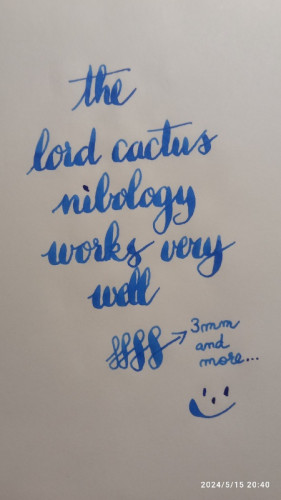 the
lord cactus
nibology
works very
well
3mm
and
more...
2024/5/15 20:40